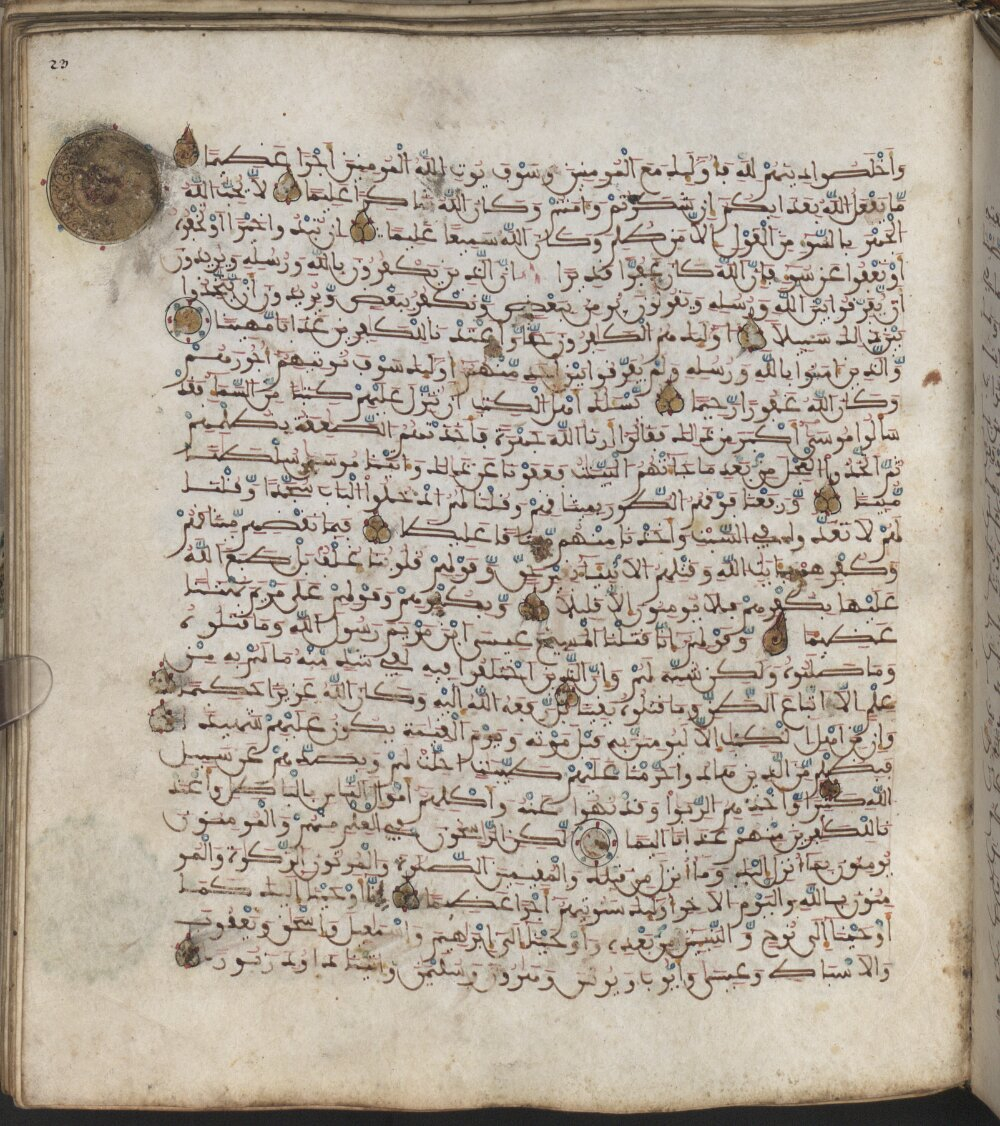 23
وأخلصوا دينهم لله فأوليك مع المومنين وسوف يوت الله المومنين أجرا عظيما
ما يفعل الله بعذابكم إن شكرتم وءامنتم وكان الله شاكرا عليما لا يحب الله
الجهر بالسوء من القول إلا من ظلم وكان الله سميعا عليما إن تبدوا خيرا أو تخفوه
أو تعفوا عن سوء فإن الله كان عفوا قديرا إن الذين يكفرون بالله ورسله ويريدون
أن يفرقوا بين الله ورسله ويقولون نومن ببعض ونكفر ببعض ويريدون أن يتخذوا
بين ذلك سبيلا أوليك هم الكفرون حقا وأعتدنا للكفرين عذابا مهينا
والذين ءامنوا بالله ورسله ولم يفرقوا بين أحد منهم أوليك سوف نوتيهم أجورهم
وكان الله غفورا رحيما يسلك أهل الكتب أن تنزل عليهم كتبا من السماء فقد
سألوا موسى أكبر من ذلك فقالوا أرنا الله جهرة فأخذتهم الصعقة بظلمهم
ثم اتخذوا العجل من بعد ما جاءتهم البينت فعفونا عن ذلك وءاتينا موسى سلطنا
مبينا ورفعنا فوقهم الطور بميثقهم وقلنا لهم ادخلوا الباب سجدا وقلنا
لهم لا تعدوا في السبت وأخذنا منهم ميثقا غليظا فبما نقضهم ميثقهم
وكفرهم بايت الله وقتلهم الانبياء بغير حق وقولهم قلوبنا غلف بل طبع الله
عليها بكفرهم فلا يومنون إلا قليلا وبكفرهم وقولهم على مريم بهتنا
عظيما وقولهم إنا قتلنا المسيح عيسى ابن مريم رسول الله وما قتلوه
وما صلبوه ولكن شبه لهم وإن الذين اختلفوا فيه لفي شك منه ما لهم به من
علم إلا اتباع الظن وما قتلوه يقينا بل رفعه الله إليه وكان الله عزيزا حكيما
وإن من أهل الكتب إلا ليومنن به قبل موته ويوم القيمة يكون عليهم شهيدا
فبظلم من الذين هادوا حرمنا عليهم طيبت أحلت لهم وبصدهم عن سبيل
الله كثيرا وأخذهم الربوا وقد نهوا عنه وأكلهم أموال الناس بالبطل وأعتد
نا للكفرين منهم عذابا أليما لكن الرسخون في العلم منهم والمومنون
يومنون بما أنزل إليك وما أنزل من قبلك والمقيمين الصلوة والموتون الزكوة والمو
منون بالله واليوم الاخر أوليك سنوتيهم أجرا عظيما إنا أوحينا إليك كما
أوحينا إلى نوح والنبيين من بعده وأوحينا إلى إبرهيم وإسمعيل وإسحق ويعقوب
والاسباط وعيسى وأيوب ويونس وهرون وسليمن وءاتينا داود زبورا